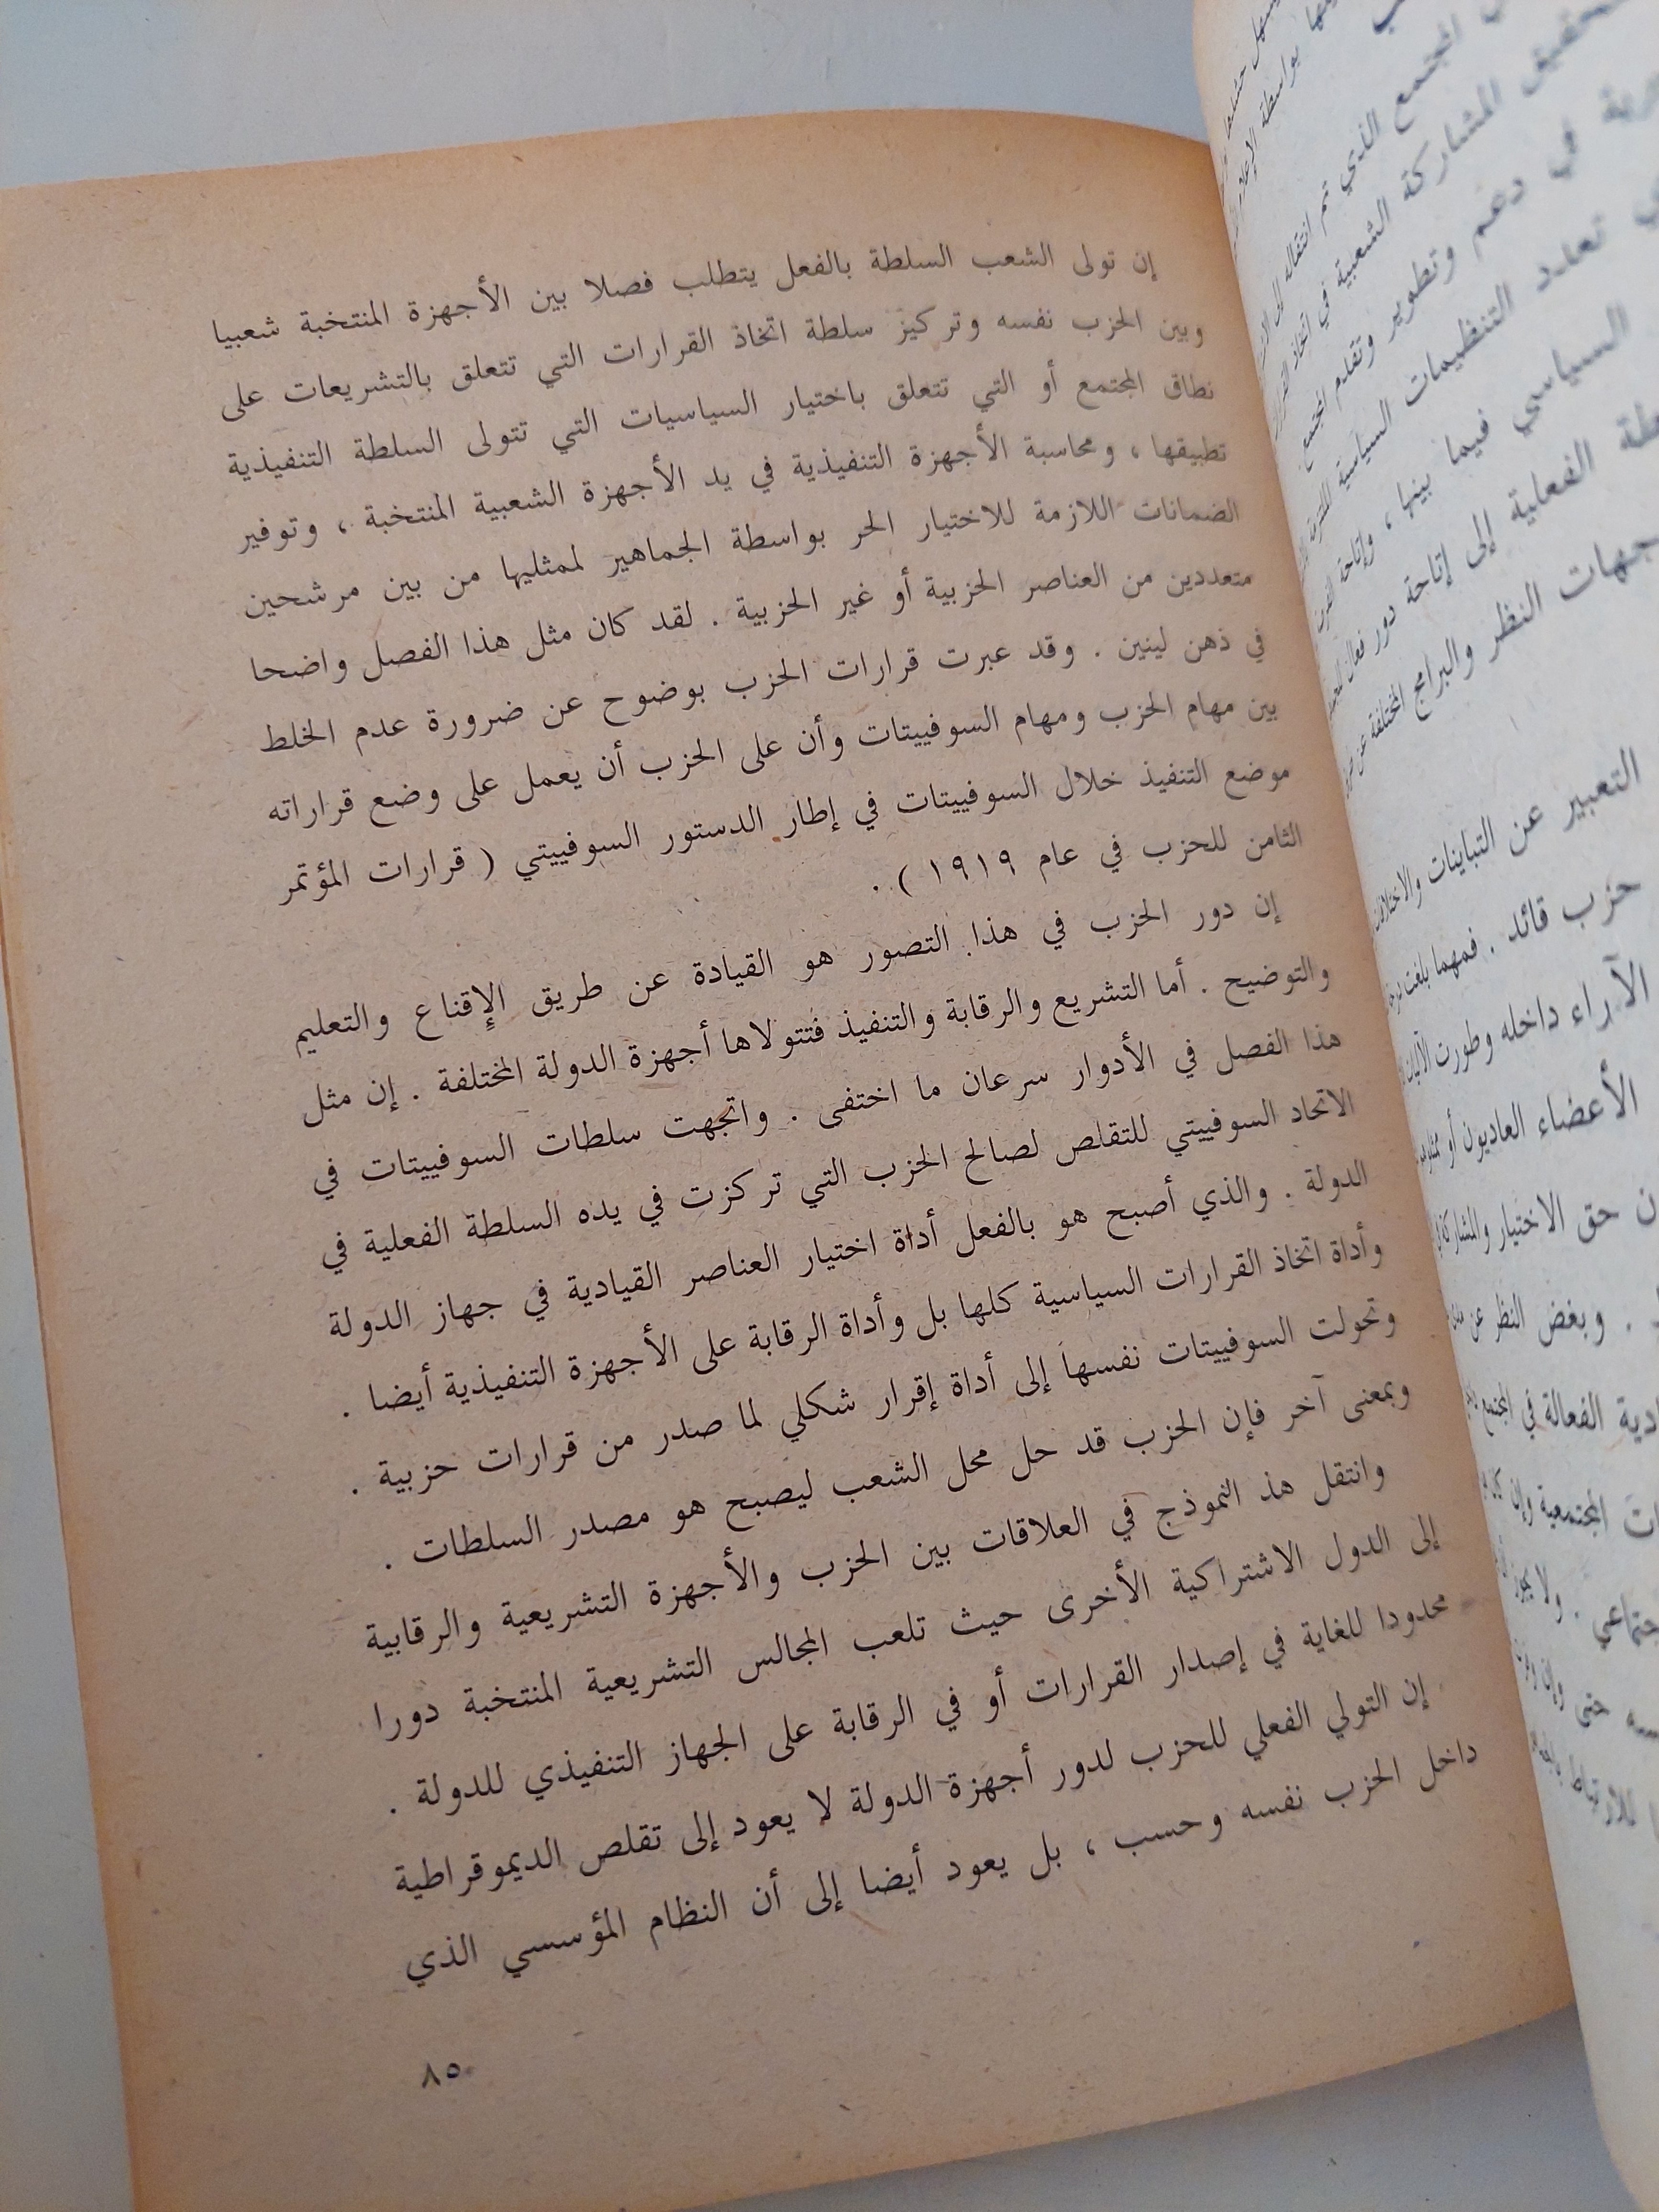 إن تولى الشعب السلطة بالفعل يتطلب فصلا بين الأجهزة المنتخبة شعبيا
وبين الحزب نفسه وتركيز سلطة اتخاذ القرارات التي تتعلق بالتشريعات على
نطاق المجتمع أو التي تتعلق باختيار السياسيات التي تتولى السلطة التنفيذية
تطبيقها ، ومحاسبة الأجهزة التنفيذية في يد الأجهزة الشعبية المنتخبة ، وتوفير
الضمانات اللازمة للاختيار الحر بواسطة الجماهير لممثليها من بين مرشحين
متعددين من العناصر الحزبية أو غير الحزبية . لقد كان مثل هذا الفصل واضحا
في ذهن لينين . وقد عبرت قرارات الحزب بوضوح عن ضرورة عدم الخلط
بين مهام الحزب ومهام السوفييتات وأن على الحزب أن يعمل على وضع قراراته
موضع التنفيذ خلال السوفييتات في إطار الدستور السوفييتي ( قرارات المؤتمر
الثامن للحزب في عام ١٩١٩ ) .
إن دور الحزب في هذا التصور هو القيادة عن طريق الإقناع والتعليم
والتوضيح . أما التشريع والرقابة والتنفيذ فتتولاها أجهزة الدولة المختلفة . إن مثل
هذا الفصل في الأدوار سرعان ما اختفى . واتجهت سلطات السوفييتات في
الاتحاد السوفييتي للتقلص لصالح الحزب التي تركزت في يده السلطة الفعلية في
الدولة . والذي أصبح هو بالفعل أداة اختيار العناصر القيادية في جهاز الدولة
وأداة اتخاذ القرارات السياسية كلها بل وأداة الرقابة على الأجهزة التنفيذية أيضا .
وتحولت السوفييتات نفسها إلى أداة إقرار شكلي لما صدر من قرارات حزبية .
وبمعنى آخر فإن الحزب قد حل محل الشعب ليصبح هو مصدر السلطات .
وانتقل هذ النموذج في العلاقات بين الحزب والأجهزة التشريعية والرقابية
إلى الدول الاشتراكية الأخرى حيث تلعب المجالس التشريعية المنتخبة دورا
محدودا للغاية في إصدار القرارات أو في الرقابة على الجهاز التنفيذي للدولة .
إن التولي الفعلي للحزب لدور أجهزة الدولة لا يعود إلى تقلص الديموقراطية
داخل الحزب نفسه وحسب ، بل يعود أيضا إلى أن النظام المؤسسي الذي
٨٥
المجتمع الذي تم انتقاله إلى
المشاركة الشعبية في اتخاذ
في دعم وتطوير وتقدم المجتمع
تعدد التنظيمات السياسية
السياسي فيما بينها ، وإتاحة
الفعلية إلى إتاحة دور فعال
النظر والبرامج المختلفة عن
التعبير عن التباينات والاختلافات
حزب قائد . فمهما بلغت
الآراء داخله وطورت
الأعضاء العاديون أو
حق الاختيار والمشاركة
. وبغض النظر عن
الفعالة في المجتمع
المجتمعية وإن
. ولا يجوز
حتى وإن
للارتباط